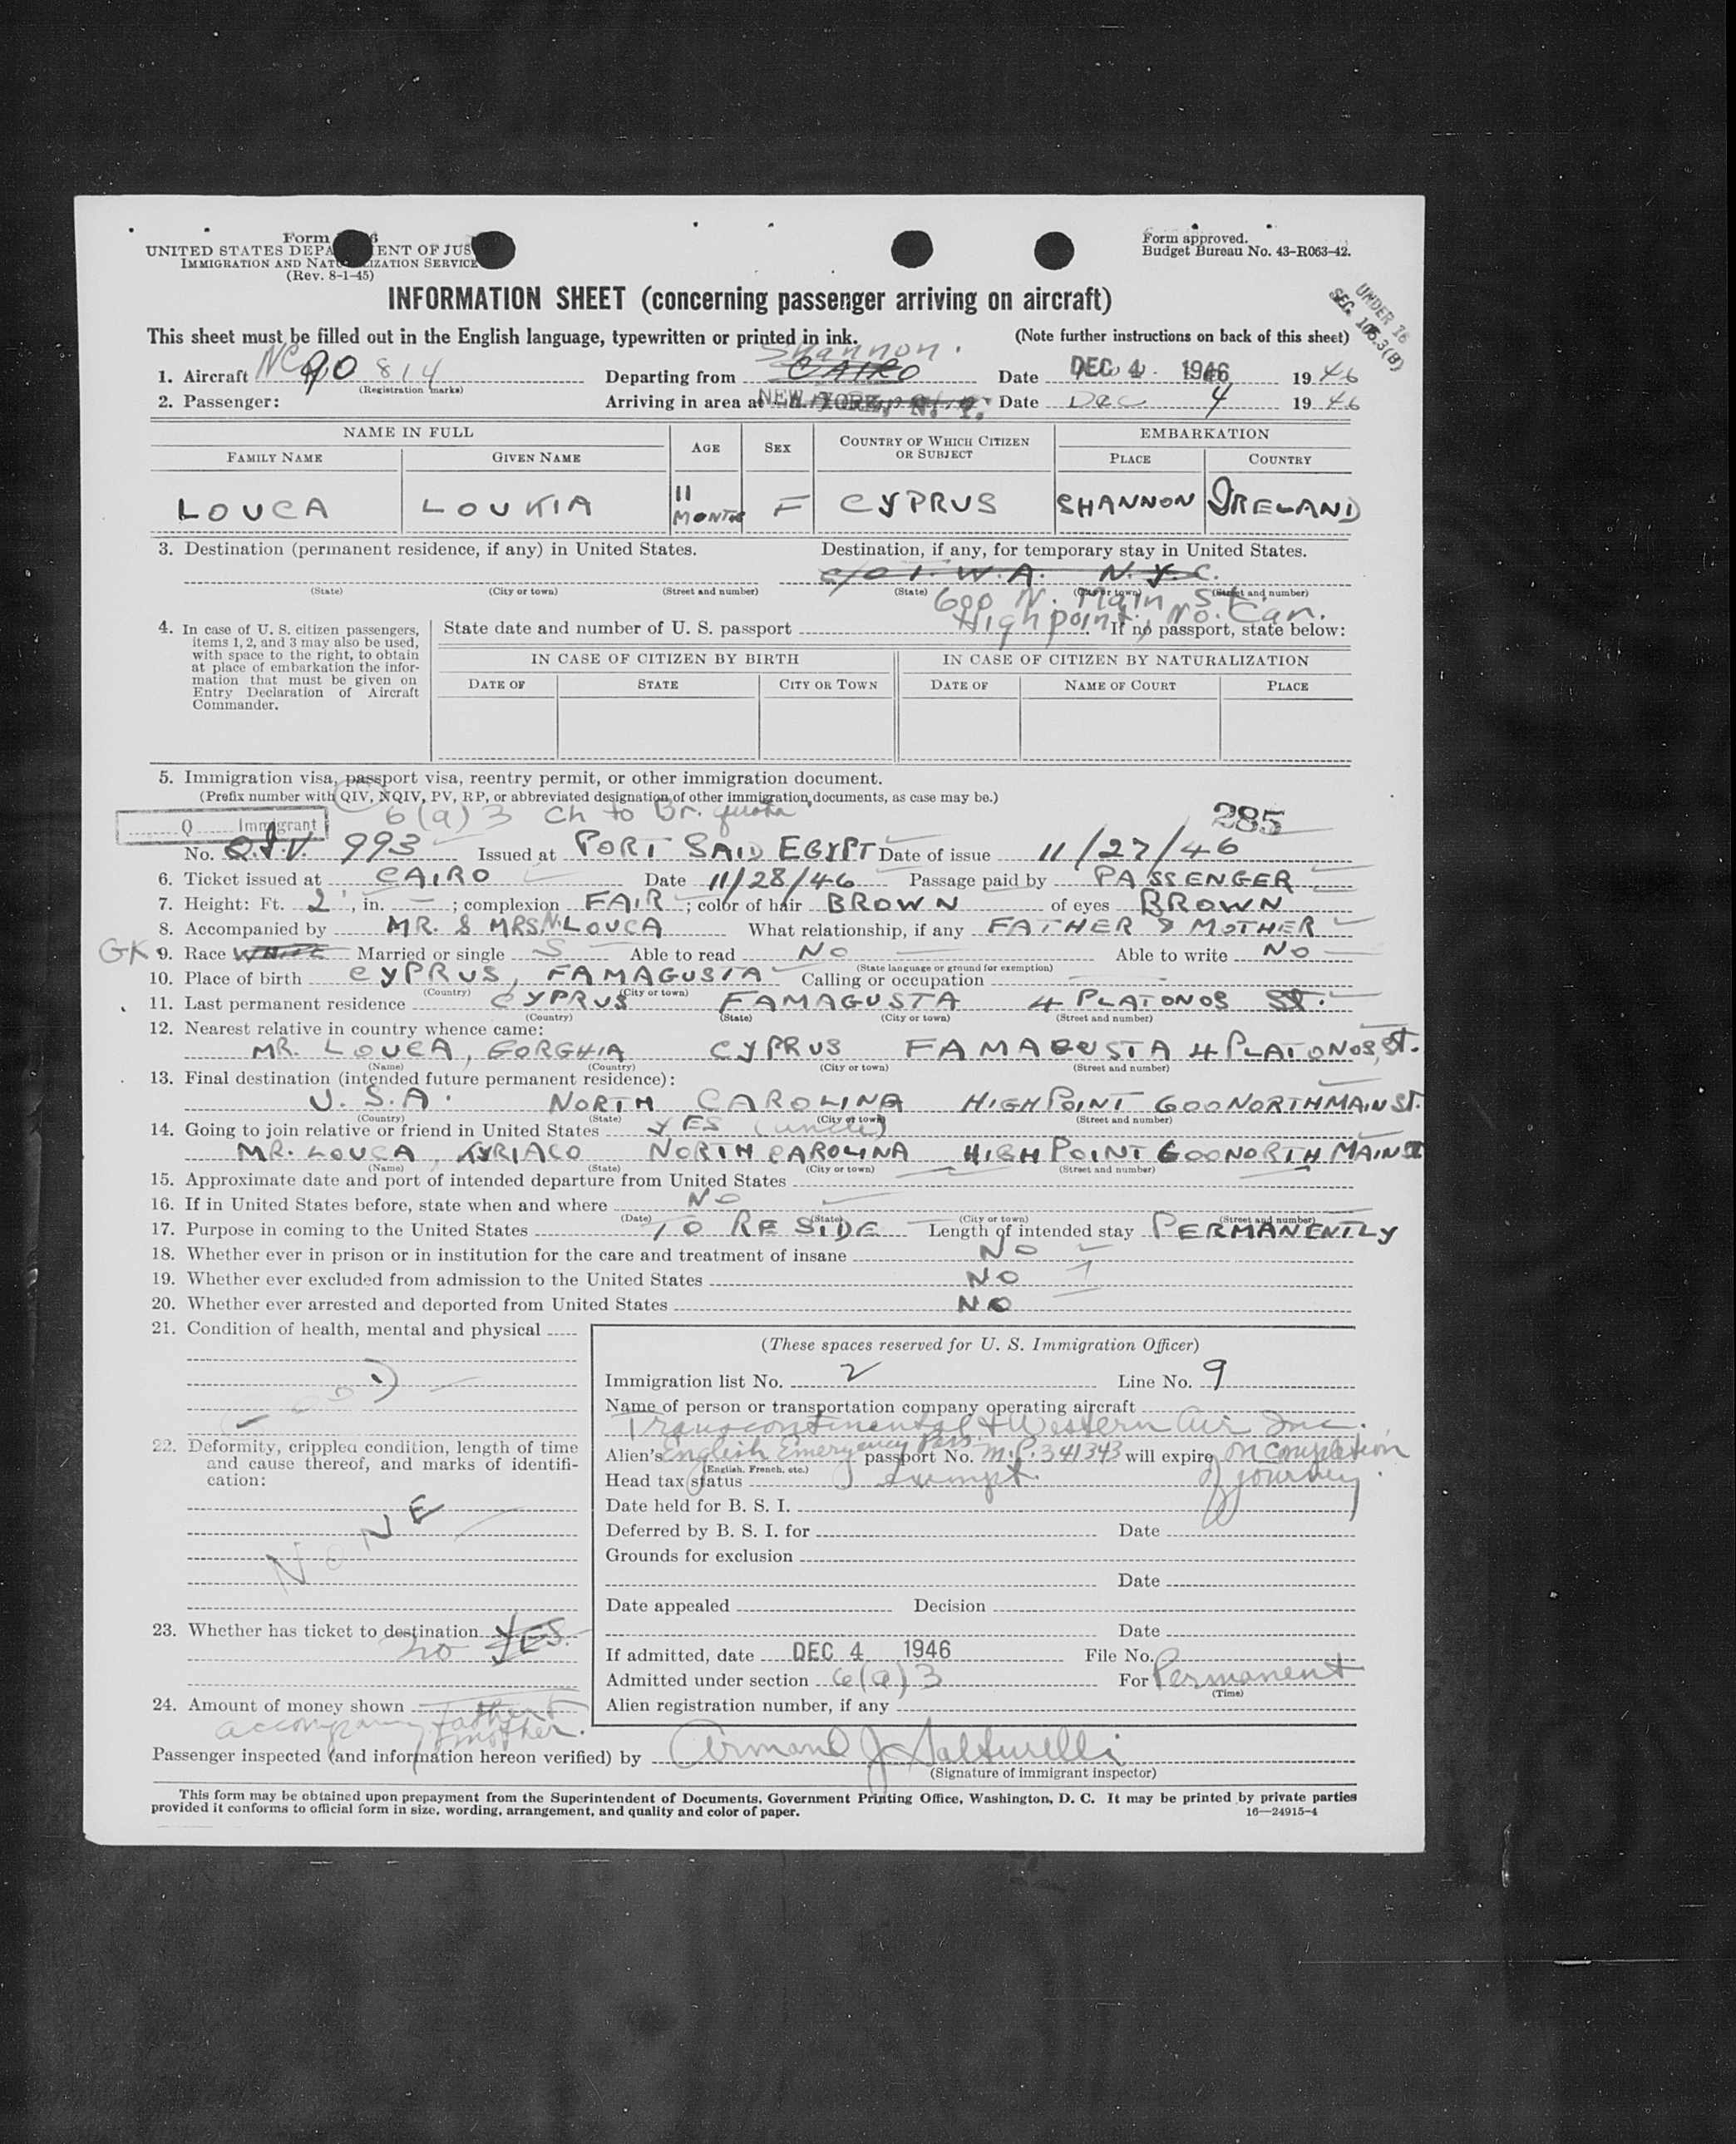 Form
UNITED STATES DEPA ENT OF JUS
IMMIGRATION AND NATU IZATION SERVICE
(Rev. 8-1-45)
Form approved.
Budget Bureau No. 43-R063-42.
UNDER 16
SEC. 105.3(B)
INFORMATION SHEET (concerning passenger arriving on aircraft)
This sheet must be filled out in the English language, typewritten or printed in ink. (Note further instructions on back of this sheet)
Shannon.
1. Aircraft NC 90 814 Departing from CAIRO Date DEC 4 1946 19 46
(Registration marks)
2. Passenger: Arriving in area at NEW YORK, N. Y. Date Dec 4 19 46
NAME IN FULL AGE SEX COUNTRY OF WHICH CITIZEN OR SUBJECT EMBARKATION
FAMILY NAME GIVEN NAME PLACE COUNTRY
LOUCA LOUKIA 11 MONTHS F CYPRUS SHANNON IRELAND
3. Destination (permanent residence, if any) in United States. Destination, if any, for temporary stay in United States.
c/o T.W.A. N.Y.C.
(State) (City or town) (Street and number) (State) (City or town) (Street and number)
600 N. Main St.
Highpoint, No. Car.
4. In case of U. S. citizen passengers, items 1, 2, and 3 may also be used, with space to the right, to obtain at place of embarkation the information that must be given on Entry Declaration of Aircraft Commander.
State date and number of U. S. passport If no passport, state below:
IN CASE OF CITIZEN BY BIRTH IN CASE OF CITIZEN BY NATURALIZATION
DATE OF STATE CITY OR TOWN DATE OF NAME OF COURT PLACE
5. Immigration visa, passport visa, reentry permit, or other immigration document.
(Prefix number with QIV, NQIV, PV, RP, or abbreviated designation of other immigration documents, as case may be.)
Q Immigrant 6(a)3 Ch to Br. quota 285
No. Q.I.V. 993 Issued at PORT SAID EGYPT Date of issue 11/27/46
6. Ticket issued at CAIRO Date 11/28/46 Passage paid by PASSENGER
7. Height: Ft. 2', in. — ; complexion FAIR ; color of hair BROWN of eyes BROWN
8. Accompanied by MR. & MRS N. LOUCA What relationship, if any FATHER & MOTHER
GK 9. Race WHITE Married or single S Able to read NO Able to write NO
(State language or ground for exemption)
10. Place of birth CYPRUS, FAMAGUSTA Calling or occupation
(Country) (City or town)
11. Last permanent residence CYPRUS FAMAGUSTA 4 PLATONOS ST.
(Country) (State) (City or town) (Street and number)
12. Nearest relative in country whence came:
MR. LOUCA, GORGHIA CYPRUS FAMAGUSTA 4 PLATONOS, ST.
(Name) (Country) (City or town) (Street and number)
13. Final destination (intended future permanent residence):
U.S.A. NORTH CAROLINA HIGHPOINT 600 NORTH MAIN ST.
(Country) (State) (City or town) (Street and number)
14. Going to join relative or friend in United States YES (uncle)
MR. LOUCA, KYRIACO NORTH CAROLINA HIGH POINT 600 NORTH MAIN
(Name) (State) (City or town) (Street and number)
15. Approximate date and port of intended departure from United States
16. If in United States before, state when and where NO
(Date) (State) (City or town) (Street and number)
17. Purpose in coming to the United States TO RESIDE Length of intended stay PERMANENTLY
18. Whether ever in prison or in institution for the care and treatment of insane NO
19. Whether ever excluded from admission to the United States NO
20. Whether ever arrested and deported from United States NO
21. Condition of health, mental and physical
22. Deformity, crippled condition, length of time and cause thereof, and marks of identification:
NONE
23. Whether has ticket to destination YES
no
24. Amount of money shown
accompany father & mother.
(These spaces reserved for U. S. Immigration Officer)
Immigration list No. 2 Line No. 9
Name of person or transportation company operating aircraft
Transcontinental & Western Air Inc.
Alien's English Emergency Pass. passport No. M.P. 341343 will expire on completion of journey.
(English, French, etc.)
Head tax status exempt.
Date held for B. S. I.
Deferred by B. S. I. for Date
Grounds for exclusion
Date
Date appealed Decision
Date
If admitted, date DEC 4 1946 File No.
Admitted under section 6(a)3 For Permanent
(Time)
Alien registration number, if any
Passenger inspected (and information hereon verified) by Armand J.
(Signature of immigrant inspector)
This form may be obtained upon prepayment from the Superintendent of Documents, Government Printing Office, Washington, D. C. It may be printed by private parties
provided it conforms to official form in size, wording, arrangement, and quality and color of paper. 16—24915-4